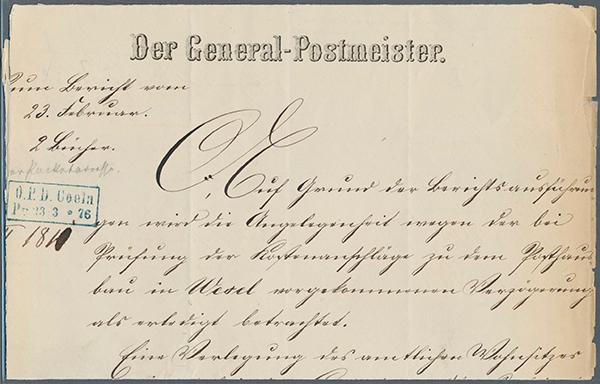 Der General-Postmeister.
Zum Bericht vom
23. Februar.
2 Bücher.
O.P.D. Coeln
Pr. 23 3 76
II 1810
Auf Grund der Berichtsausführun
gen wird die Angelegenheit wegen der bei
Prüfung der Kostenanschläge zu dem Posthaus-
bau in Wesel vorgekommenen Verzögerung
als erledigt betrachtet.
Eine Verlegung des amtlichen Wohnsitzes